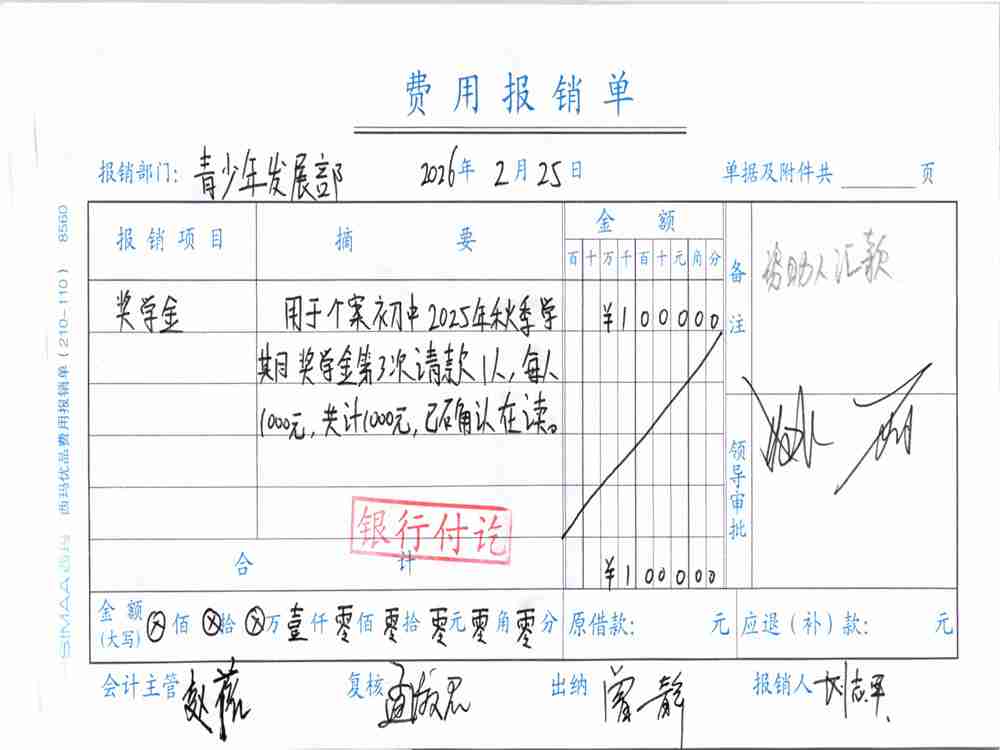 费用报销单
报销部门：青少年发展部 2026年2月25日 单据及附件共 页
报销项目 摘要 金额 备注 资助人汇款
百十万千百十元角分
奖学金 用于个案初中2025年秋季学 ¥100000
期奖学金第3次请款1人，每人
1000元，共计1000元，已确认在读。
领导审批
银行付讫
合计 ¥100000
金额(大写) ⊗佰⊗拾⊗万壹仟零佰零拾零元零角零分 原借款： 元 应退（补）款： 元
会计主管 复核 出纳 曾静 报销人
SIMAA西玛 西玛优品费用报销单（210-110） 8560